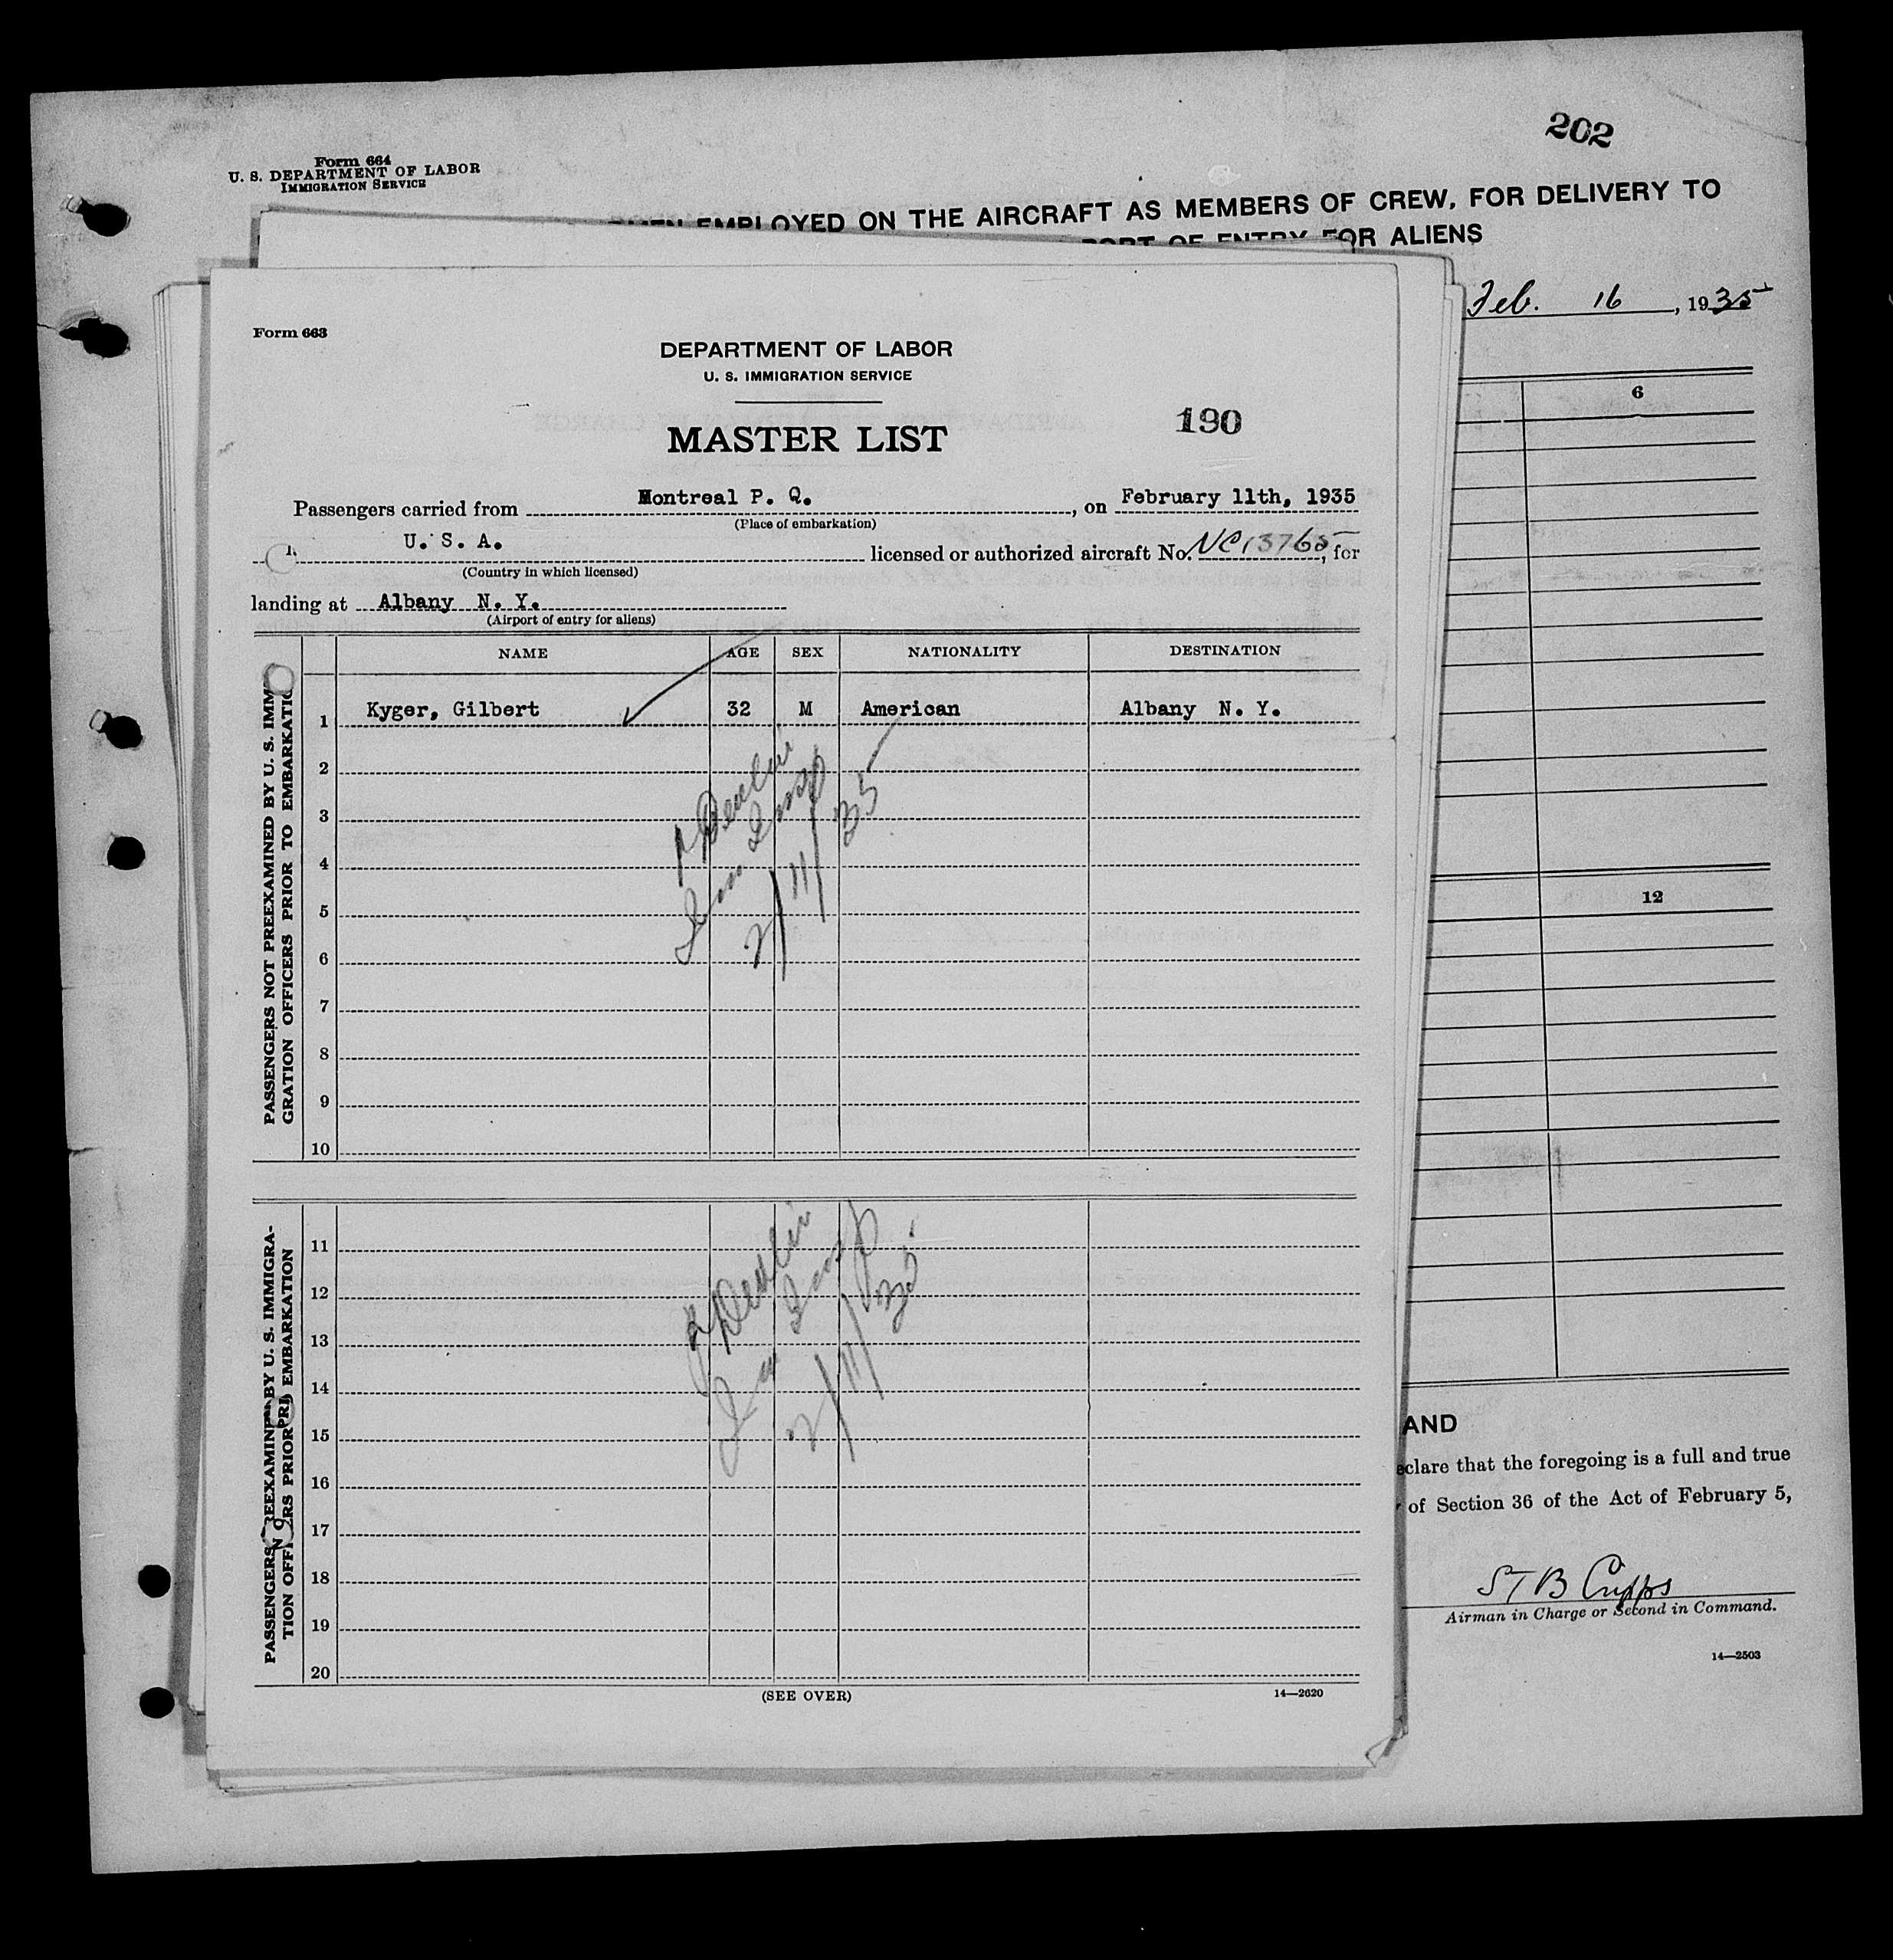 202
Form 664
U. S. DEPARTMENT OF LABOR
IMMIGRATION SERVICE
EMPLOYED ON THE AIRCRAFT AS MEMBERS OF CREW, FOR DELIVERY TO
PORT OF ENTRY FOR ALIENS
Feb. 16, 1935
6
12
AND
eclare that the foregoing is a full and true
of Section 36 of the Act of February 5,
S T B Cripps
Airman in Charge or Second in Command.
14—2503
Form 663
DEPARTMENT OF LABOR
U. S. IMMIGRATION SERVICE
190
MASTER LIST
Passengers carried from Montreal P. Q., on February 11th, 1935
(Place of embarkation)
U. S. A. licensed or authorized aircraft No. NC13765, for
(Country in which licensed)
landing at Albany N. Y.
(Airport of entry for aliens)
NAME AGE SEX NATIONALITY DESTINATION
PASSENGERS NOT PREEXAMINED BY U. S. IMMI
GRATION OFFICERS PRIOR TO EMBARKATIO
1 Kyger, Gilbert 32 M American Albany N. Y.
2
3
4
5
6
7
8
9
10
Devlin
Imm Insp
2/11/35
PASSENGERS PREEXAMINED BY U. S. IMMIGRA-
TION OFFICERS PRIOR EMBARKATION
11
12
13
14
15
16
17
18
19
20
Devlin
Insp
2/11/35
(SEE OVER)
14—2620